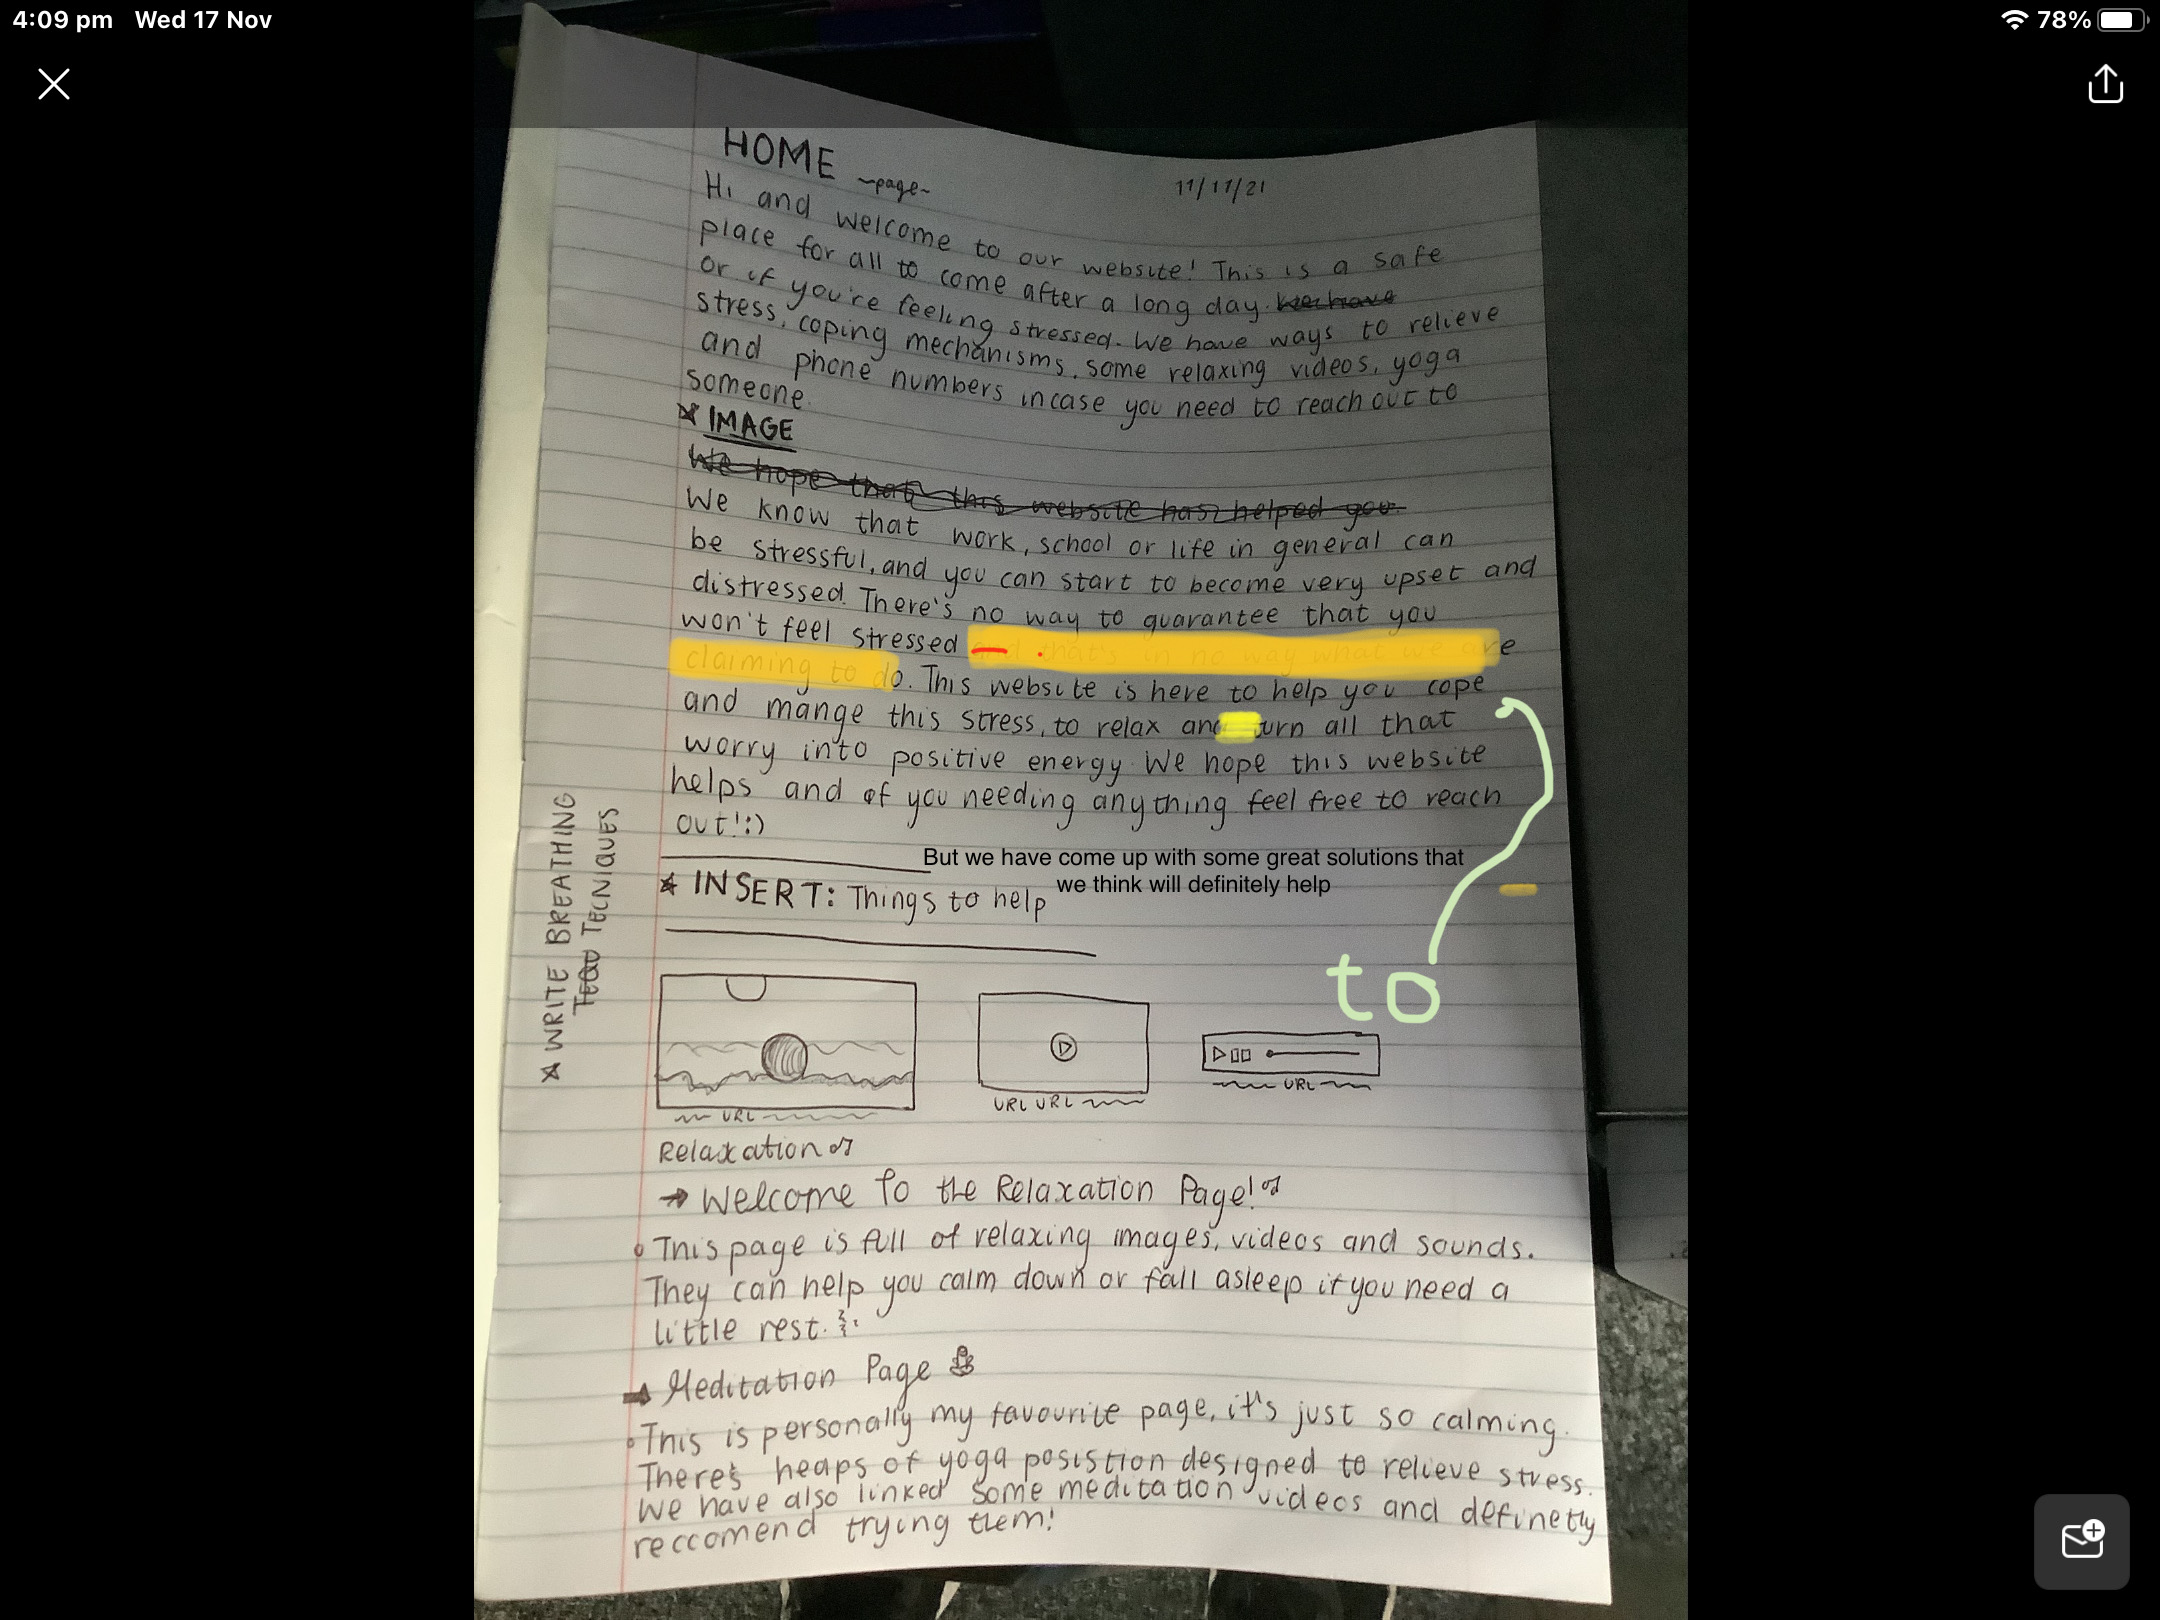 4:09 pm Wed 17 Nov
78%
HOME ~page~
11/11/21
Hi and welcome to our website! This is a safe
place for all to come after a long day. We have
or if you're feeling stressed. We have ways to relieve
stress, coping mechanisms, some relaxing videos, yoga
and phone numbers incase you need to reach out to
someone.
IMAGE
We hope that this website has helped you.
We know that work, school or life in general can
be stressful, and you can start to become very upset and
distressed. There's no way to guarantee that you
won't feel stressed and that's in no way what we are
claiming to do. This website is here to help you cope
and mange this stress, to relax and turn all that
worry into positive energy. We hope this website
helps and of you needing anything feel free to reach
out! :)
But we have come up with some great solutions that
we think will definitely help
INSERT: Things to help
to
WRITE BREATHING
TECNIQUES
URL
URL URL
URL
Relaxation
→ Welcome to the Relaxation Page!
This page is full of relaxing images, videos and sounds.
They can help you calm down or fall asleep if you need a
little rest.
→ Meditation Page
This is personally my favourite page, it's just so calming.
There's heaps of yoga posistion designed to relieve stress.
We have also linked some meditation videos and definetly
reccomend trying them!